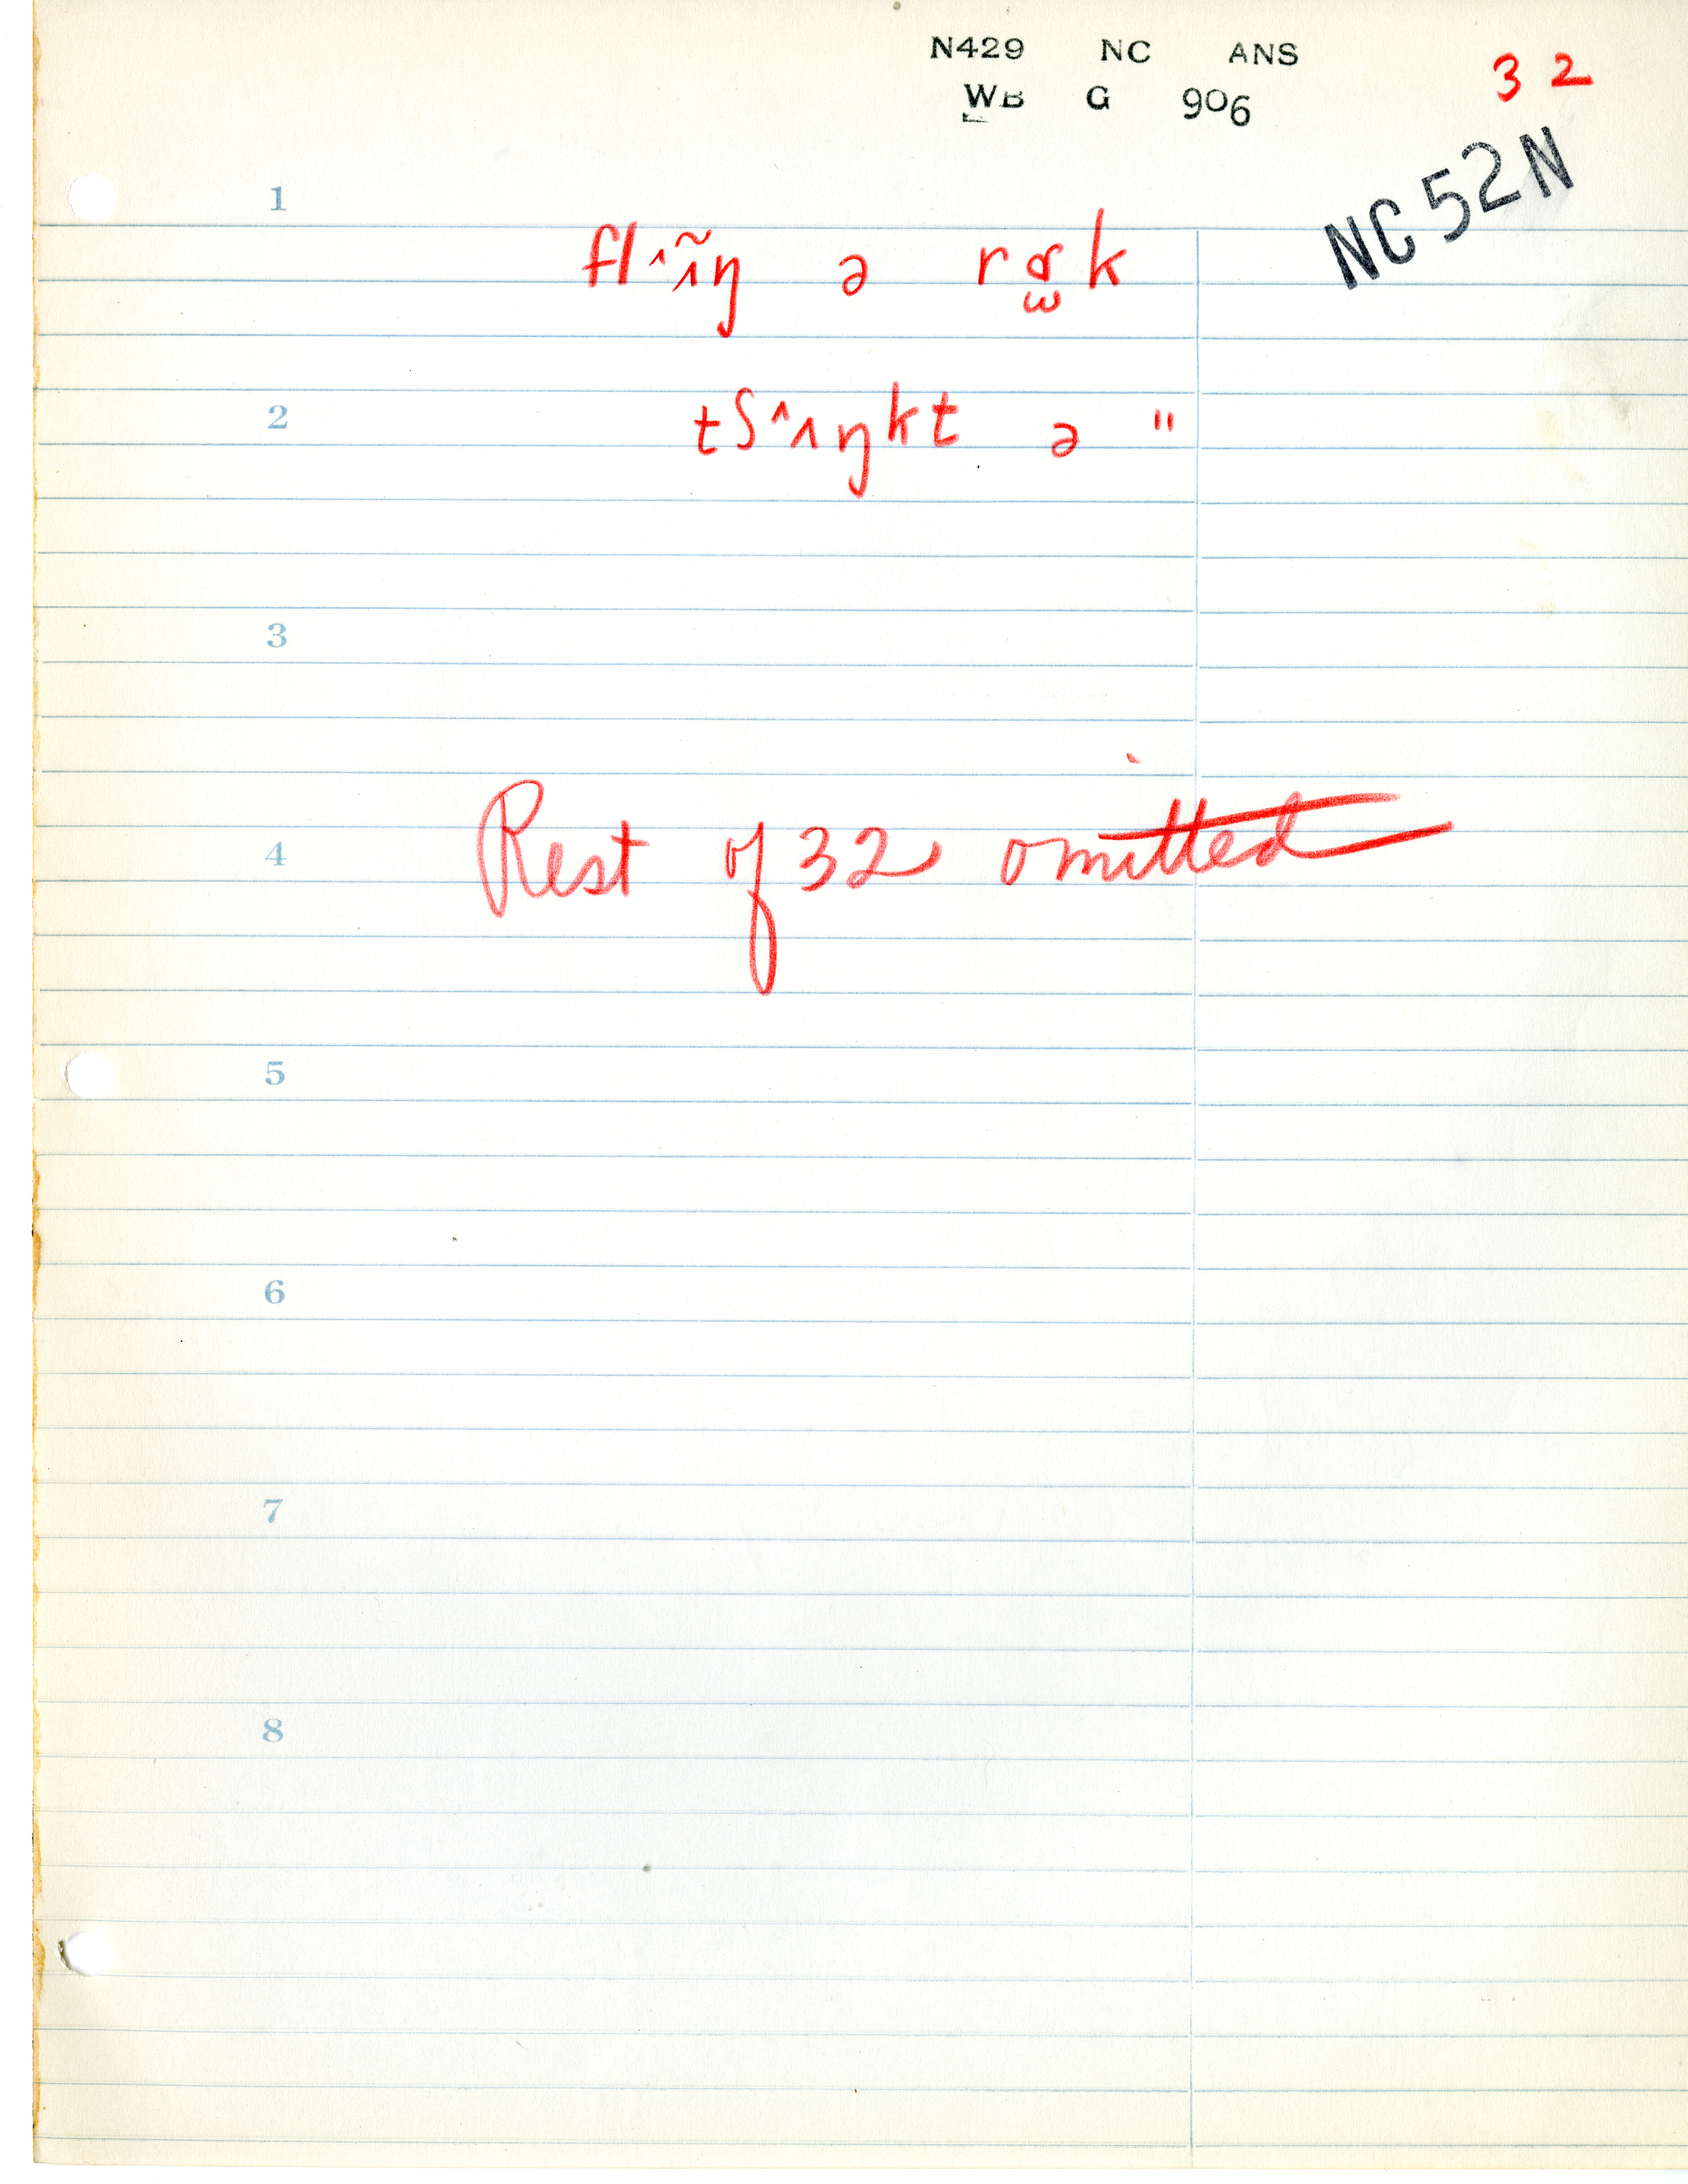 N429 NC ANS
WB G 906
32
NC 52N
1
flɪɪ̃ŋ ə rɒk
2
tʃɪŋkt ə "
3
4
Rest of 32 omitted
5
6
7
8